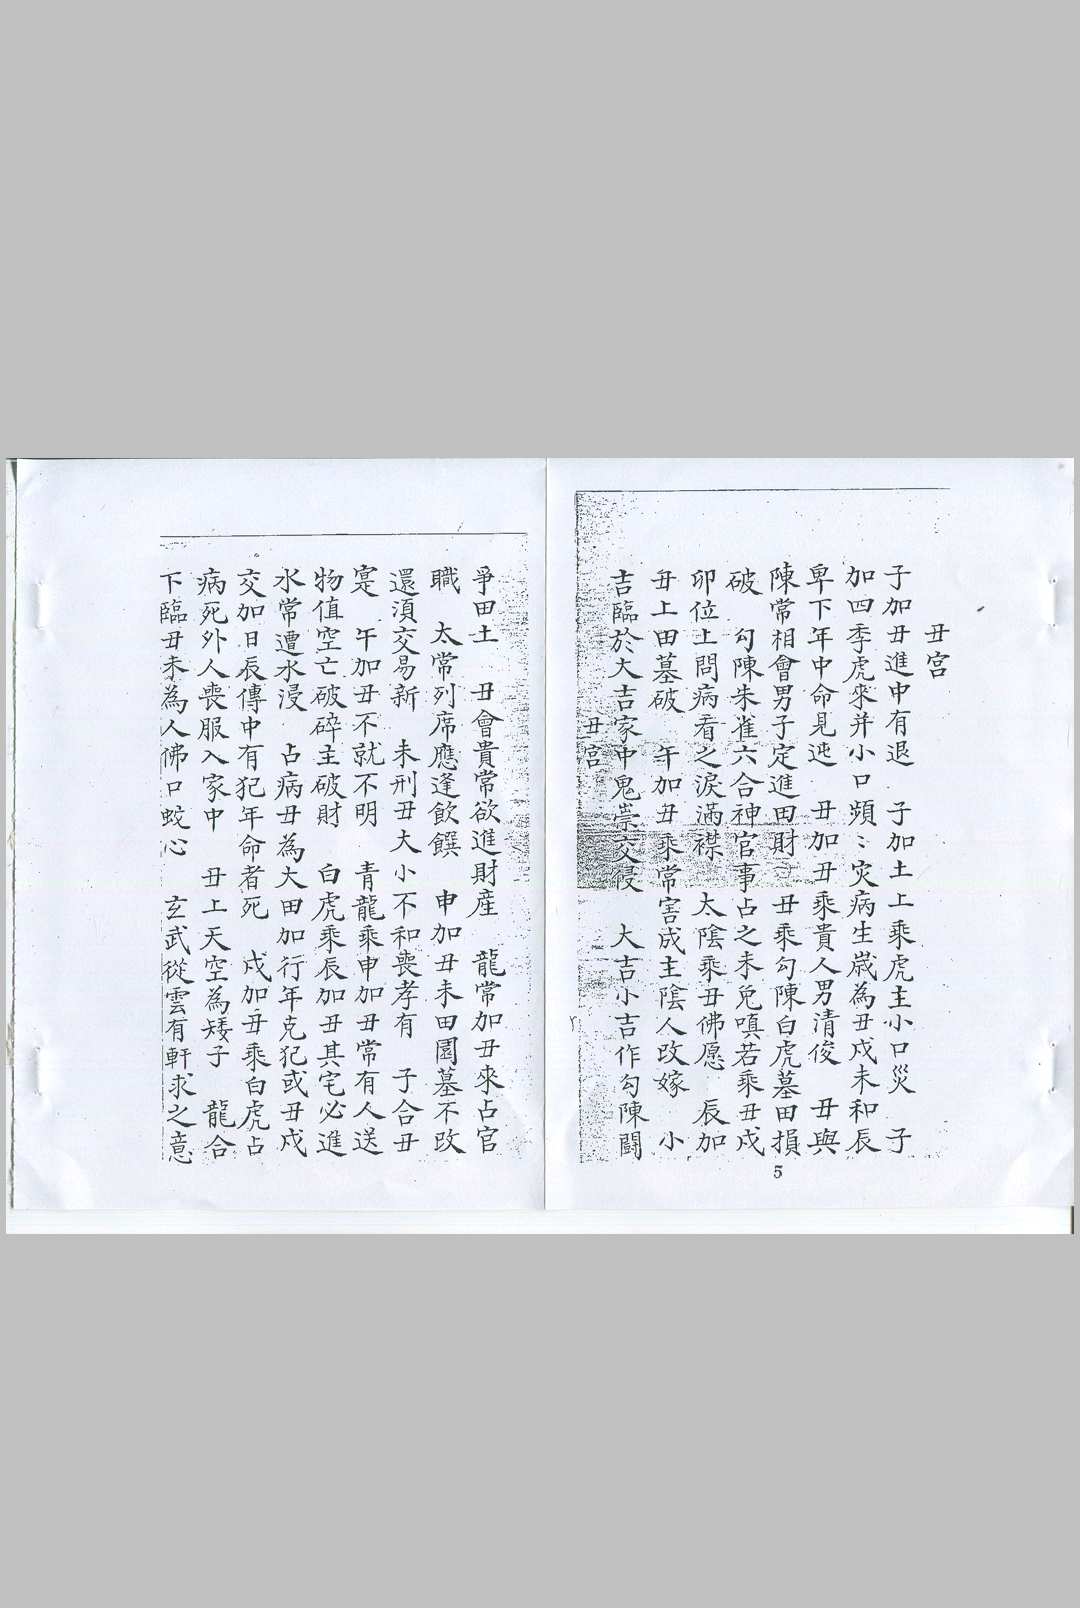 丑宮
子加丑進中有退　子加土上乘虎主小口災　子
加四季虎來并小口頻〻灾病生歲為丑戌未和辰
卑下年中命見迍　丑加丑乘貴人男清俊　丑與
陳常相會男子定進田財　丑乘勾陳白虎墓田損
破　勾陳朱雀六合神官事占之未免嗔若乘丑戌
卯位上問病看之淚滿襟　太陰乘丑佛愿　辰加
丑上田墓破　午加丑乘常害成主陰人改嫁　小
吉臨於大吉家中鬼祟交侵　大吉小吉作勾陳鬪
丑宮
5
爭田土　丑會貴常欲進財産　龍常加丑來占官
職　太常列席應逢飲饌　申加丑未田園墓不改
還須交易新　未刑丑大小不和喪孝有　子合丑
寔　午加丑不就不明　青龍乘申加丑常有人送
物值空亡破碎主破財　白虎乘辰加丑其宅必進
水常遭水浸　占病丑為大田加行年克犯或丑戌
交加日辰傳中有犯年命者死　戌加丑乘白虎占
病死外人喪服入家中　丑上天空為矮子　龍合
下臨丑未為人佛口蛟心　玄武從雲有軒求之意